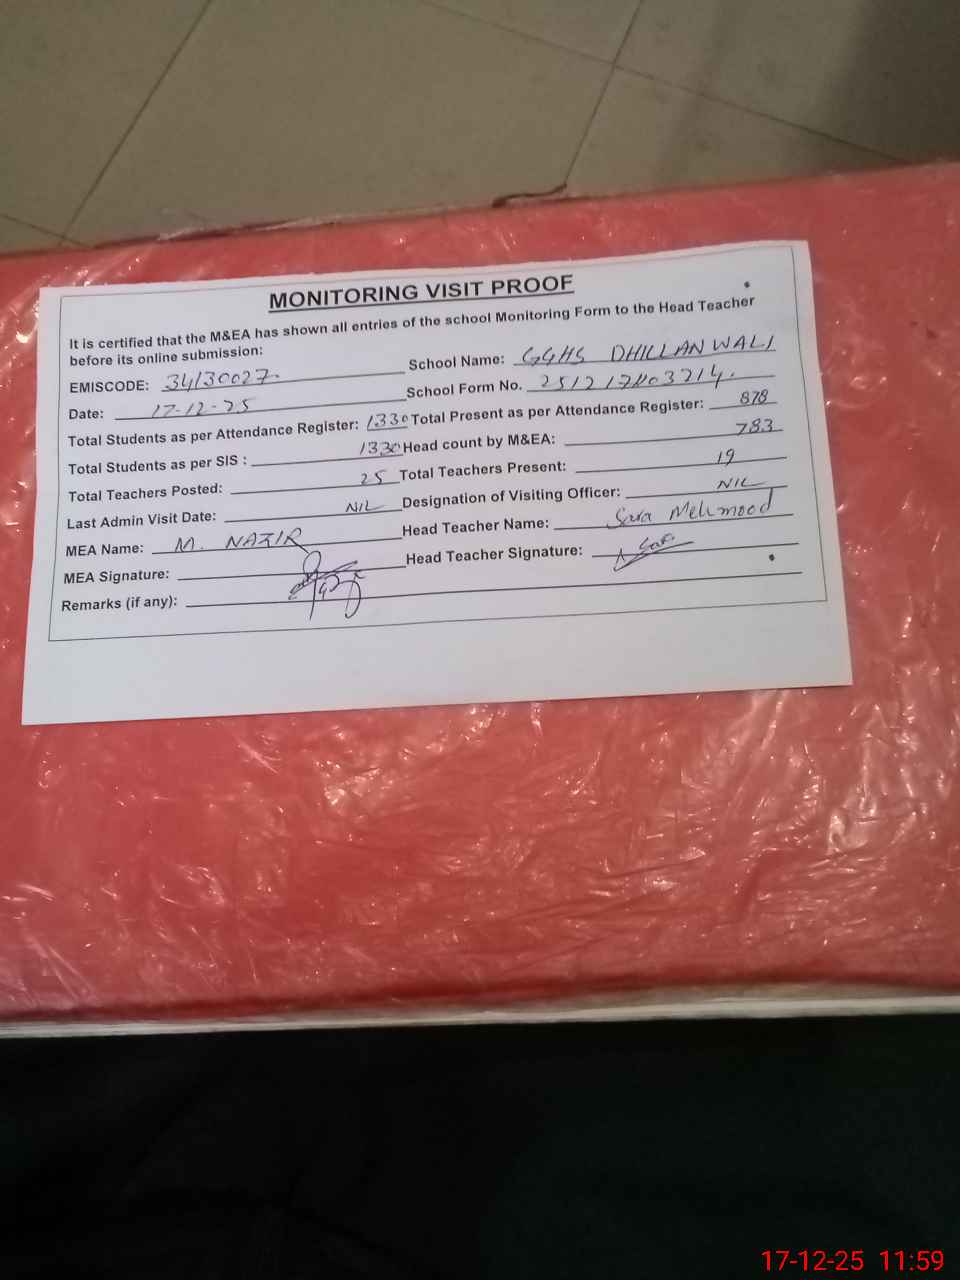 MONITORING VISIT PROOF
It is certified that the M&EA has shown all entries of the school Monitoring Form to the Head Teacher
before its online submission:
EMISCODE: 34130027. School Name: GGHS DHILLANWALI
Date: 17-12-25 School Form No.
Total Students as per Attendance Register: 1330 Total Present as per Attendance Register: 878
Total Students as per SIS : 1330 Head count by M&EA: 783
Total Teachers Posted: 25 Total Teachers Present: 19
Last Admin Visit Date: NIL Designation of Visiting Officer: NIL
MEA Name: M. NAZIR Head Teacher Name: Sara Mehmood
MEA Signature: Head Teacher Signature:
Remarks (if any):
17-12-25 11:59